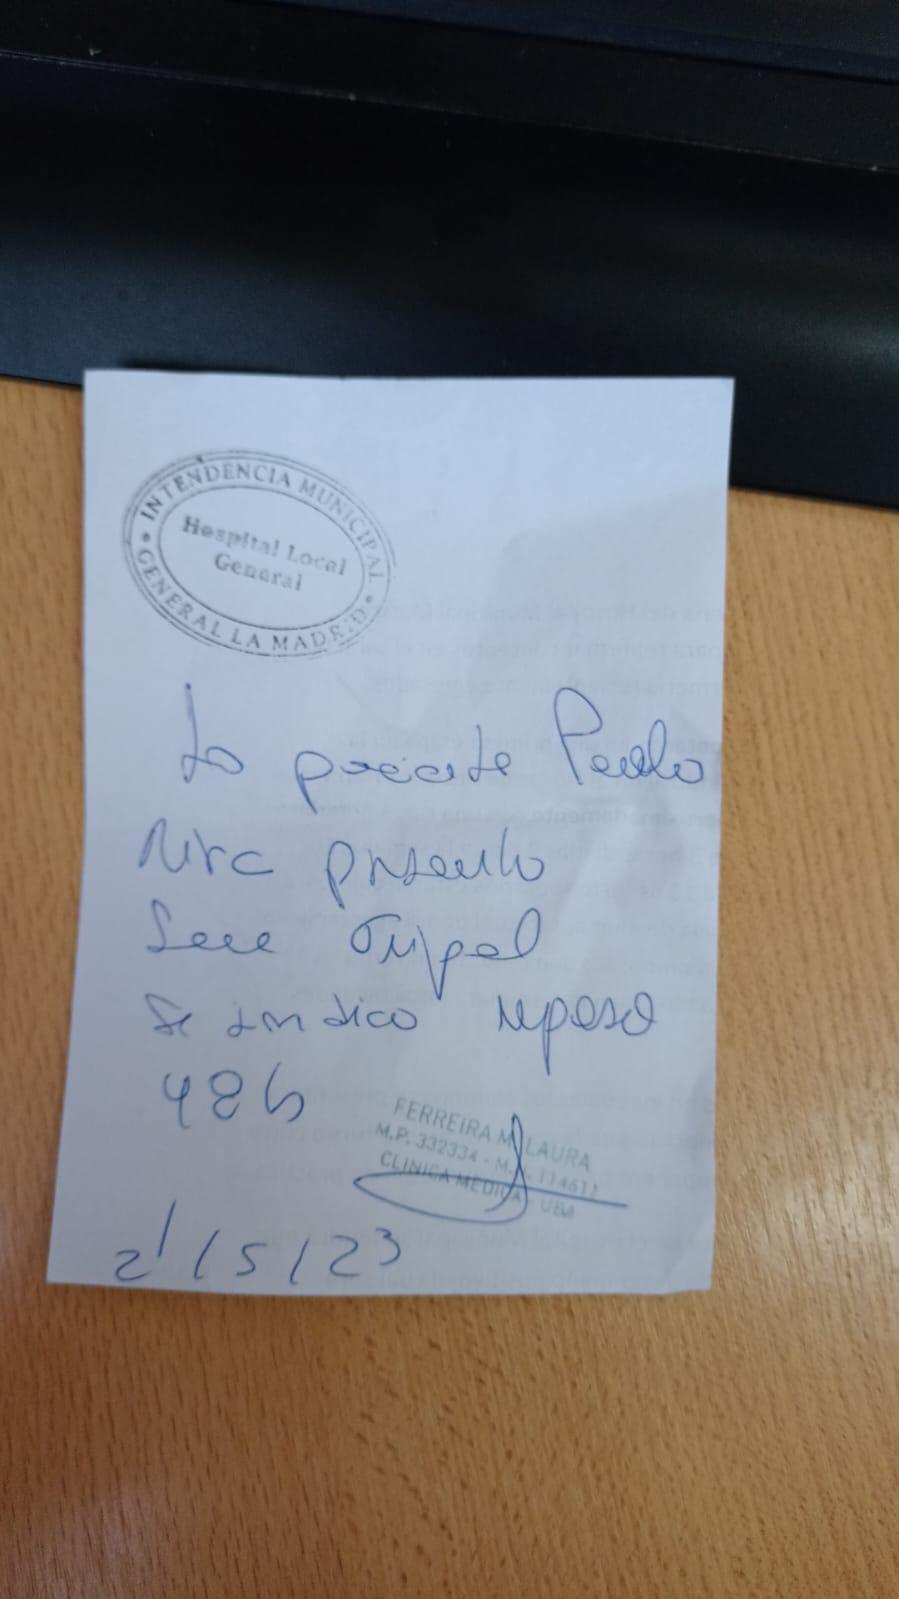 INTENDENCIA MUNICIPAL
Hospital Local
General
GENERAL LA MADRID
La paciente
presento
Gripal
Se indico reposo
48h
FERREIRA M. LAURA
M.P. 332334 - M. 114611
CLINICA MEDICA - UBA
21/5/23